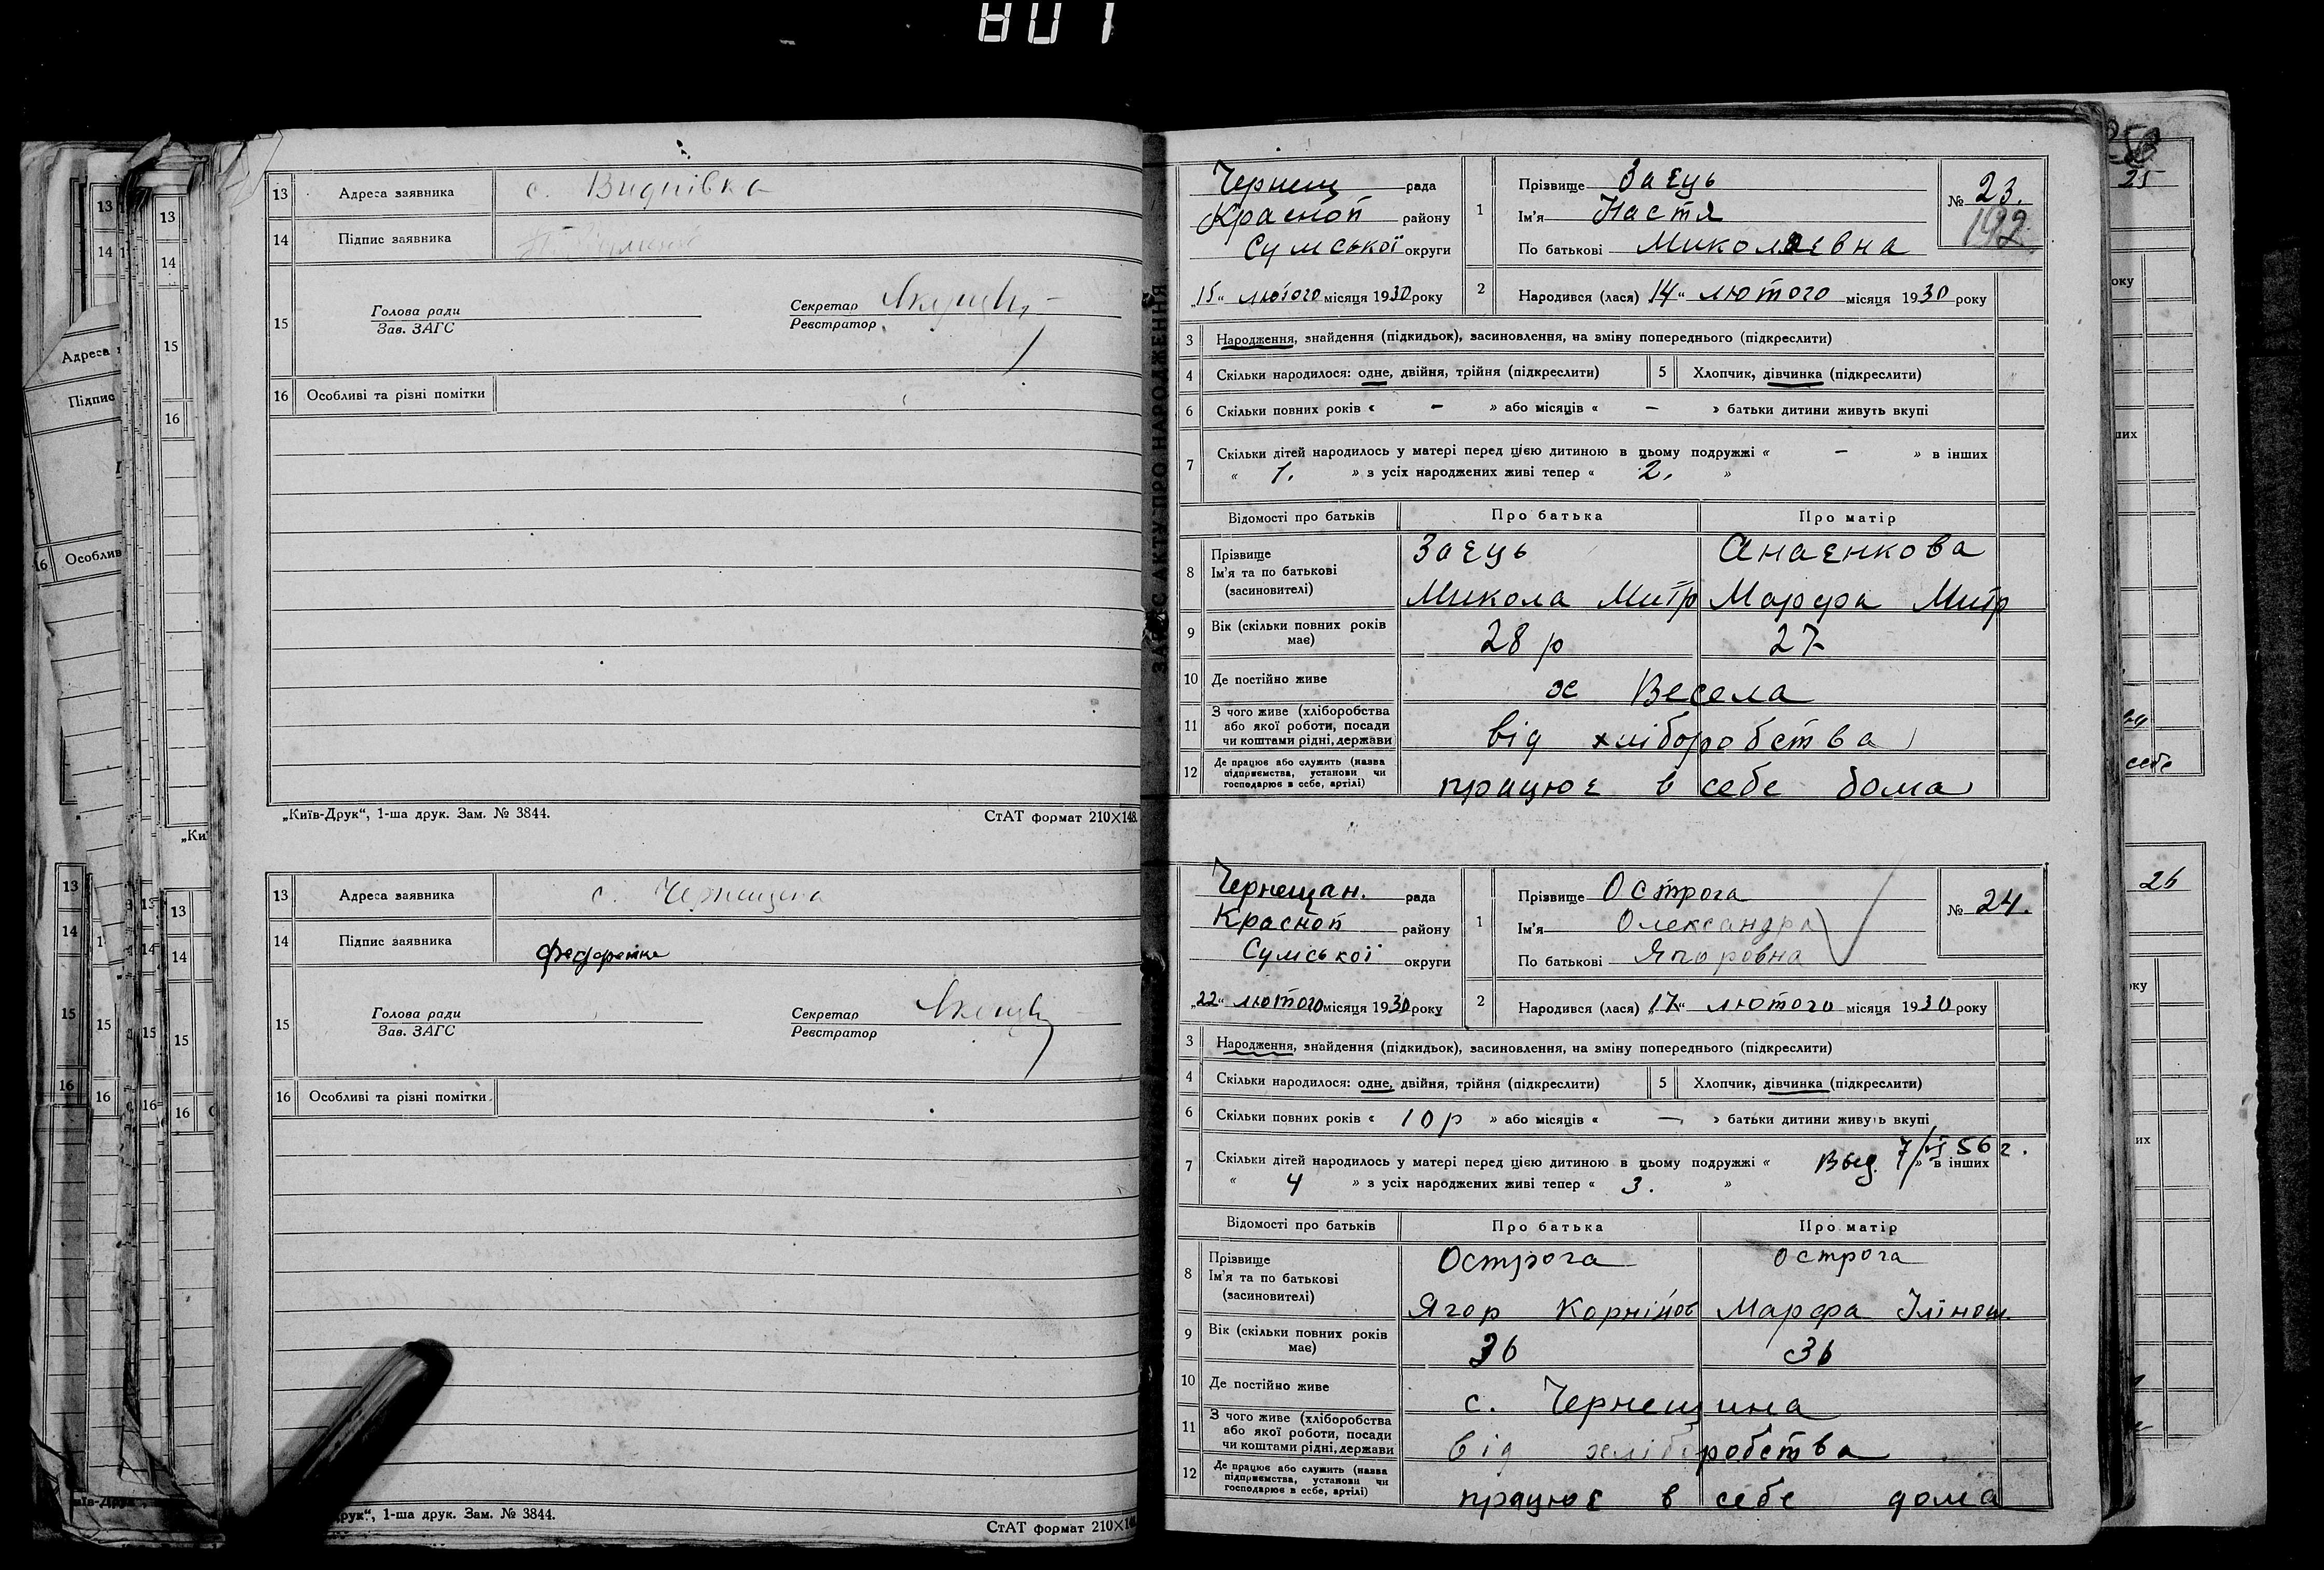 801
13 Адреса заявника с. Видпівка
14 Підпис заявника
15 Голова ради
Зав. ЗАГС
Секретар
Реєстратор
16 Особливі та різні помітки
„Київ-Друк“, 1-ша друк. Зам. № 3844. СтАТ формат 210×148.
13 Адреса заявника с. Чернещина
14 Підпис заявника
15 Голова ради
Зав. ЗАГС
Секретар
Реєстратор
16 Особливі та різні помітки
друк“, 1-ша друк. Зам. № 3844. СтАТ формат 210×148
ЗАПИС АКТУ ПРО НАРОДЖЕННЯ
Чернещ рада
Красноп району
Сумської округи
„15“ лютого місяця 1930 року
1 Прізвище Заєць
Ім'я Настя
По батькові Миколаєвна
№ 23.
192
2 Народився (лася) 14“ лютого місяця 1930 року
3 Народження, знайдення (підкидьок), засиновлення, на зміну попереднього (підкреслити)
4 Скільки народилося: одне, двійня, трійня (підкреслити) 5 Хлопчик, дівчинка (підкреслити)
6 Скільки повних років « — » або місяців « — » батьки дитини живуть вкупі
7 Скільки дітей народилось у матері перед цією дитиною в цьому подружжі « — » в інших
« 1. » з усіх народжених живі тепер « 2. »
Відомості про батьків Про батька Про матір
8 Прізвище
Ім'я та по батькові
(засиновителі)
Заєць Анаєнкова
Микола Митр Марфа Митр
9 Вік (скільки повних років має) 28 р 27
10 Де постійно живе х Весела
11 З чого живе (хліборобства
або якої роботи, посади
чи коштами рідні, держави
від хліборобства
12 Де працює або служить (назва
підприємства, установи чи
господарює в себе, артілі)
працює в себе дома
Чернещан. рада
Красноп району
Сумської округи
„22“ лютого місяця 1930 року
1 Прізвище Острога
Ім'я Олександра
По батькові Ягоровна
№ 24.
2 Народився (лася) „17“ лютого місяця 1930 року
3 Народження, знайдення (підкидьок), засиновлення, на зміну попереднього (підкреслити)
4 Скільки народилося: одне, двійня, трійня (підкреслити) 5 Хлопчик, дівчинка (підкреслити)
6 Скільки повних років « 10 р » або місяців « — » батьки дитини живуть вкупі
7 Скільки дітей народилось у матері перед цією дитиною в цьому подружжі « » в інших
Выд. 7/VI 56 г.
« 4 » з усіх народжених живі тепер « 3. »
Відомості про батьків Про батька Про матір
8 Прізвище
Ім'я та по батькові
(засиновителі)
Острога Острога
Ягор Корнійов Марфа
9 Вік (скільки повних років має) 36 36
10 Де постійно живе с. Чернещина
11 З чого живе (хліборобства
або якої роботи, посади
чи коштами рідні, держави
від хліборобства
12 Де працює або служить (назва
підприємства, установи чи
господарює в себе, артілі)
працює в себе дома
25
себе
26